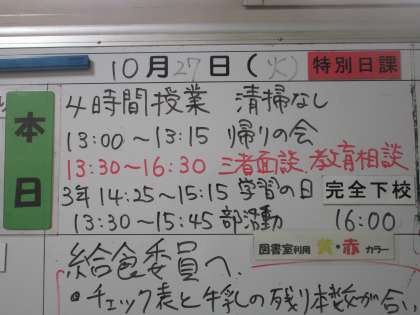 10月27日(火) 特別日課
本日
4時間授業 清掃なし
13:00～13:15 帰りの会
13:30～16:30 三者面談、教育相談
3年14:25～15:15 学習の日 完全下校
13:30～15:45 部活動 16:00
図書室利用 黄・赤 カラー
給食委員へ
・チェック表と牛乳の残り本数が合い